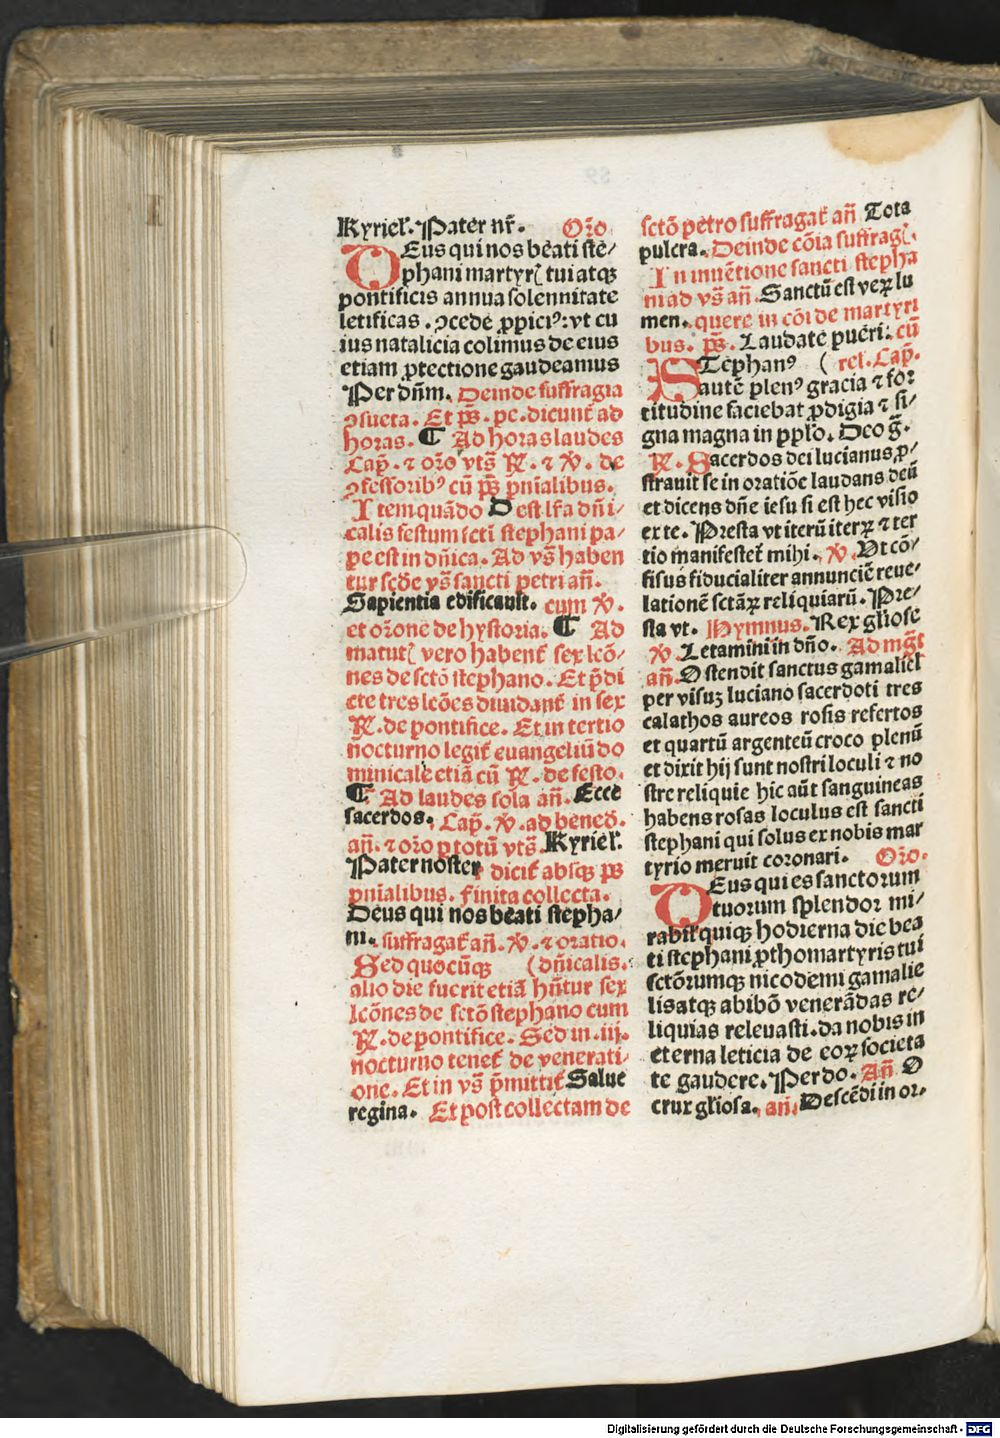 Kyriel᷒. Pater nr̄. Or̄o
DEus qui nos beati ste⸗
phani martyrꝭ tui atqꝫ
pontificis annua solennitate
letificas. ꝯcede ꝓpiciꝰ: vt cu
ius natalicia colimus de eius
etiam ꝓtectione gaudeamus
Per dn̄m. Deinde suffragia
ꝯsueta. Et p̄s. pe. dicunt᷑ ad
horas. ¶ Ad horas laudes
Cap̄. ⁊ or̄o vts̄ ꝶ. ⁊ ℣. de
ꝯfessoribꝰ cū p̄s p̄nialibus.
Item quādo D est lr̄a dn̄i⸗
calis festum scti stephani pa⸗
pe est in dn̄ica. Ad vs̄ haben
tur scd̄e vs̄ sancti petri an̄.
Sapientia edificauit. cum ℣.
et or̄one de hystoria. ¶ Ad
matutꝭ vero habent᷑ sex lcō⸗
nes de sctō stephano. Et p̄di
cte tres lcōes diuidant᷑ in sex
ꝶ. de pontifice. Et in tertio
nocturno legit᷑ euangeliū do
minicale etiā cū ꝶ. de festo.
¶ Ad laudes sola an̄. Ecce
sacerdos. Cap̄. ℣. ad bened̄.
an̄. ⁊ or̄o ꝑ totū vts̄. Kyriel᷒.
Paternoster dicit᷑ absqꝫ p̄s
p̄nialibus. finita collecta.
Deus qui nos beati stepha⸗
ni. suffragat᷑ an̄. ℣. ⁊ oratio.
Sed quocūqꝫ (dn̄icalis.
alio die fuerit etiā hn̄tur sex
lcōnes de sctō stephano cum
ꝶ. de pontifice. Sed in .iij.
nocturno tenet᷑ de venerati⸗
one. Et in vs̄ p̄mittit᷑ Salue
regina. Et post collectam de
sctō petro suffragat᷑ an̄ Tota
pulcra. Deinde cōia suffragꝭ.
In inuētione sancti stepha
ni ad vs̄ an̄. Sanctū est veꝝ lu
men. quere in cōi de martyri
bus. p̄s. Laudate pueri. cū
STephanꝰ ( rel. Cap̄.
autē plenꝰ gracia ⁊ for
titudine faciebat ꝓdigia ⁊ si⸗
gna magna in ppl̄o. Deo g̅.
ꝶ. Sacerdos dei lucianus ꝓ⸗
strauit se in oratiōe laudans deū
et dicens dn̄e iesu si est hec visio
ex te. Presta vt iterū iteꝝ ⁊ ter
tio manifestet᷑ mihi. ℣. Vt cō⸗
fisus fiducialiter annunciē reue⸗
lationē sctāꝝ reliquiarū. Pre⸗
sta vt. Hymnus. Rex gl̄iose
℣. Letamini in dn̄o. Ad mgt̄
an̄. Ostendit sanctus gamaliel
per visuꝫ luciano sacerdoti tres
calathos aureos rosis refertos
et quartū argenteū croco plenū
et dixit hij sunt nostri loculi ⁊ no
stre reliquie hic aūt sanguineas
habens rosas loculus est sancti
stephani qui solus ex nobis mar
tyrio meruit coronari. Or̄o.
DEus qui es sanctorum
tuorum splendor mi⸗
rabil᷒ quiqꝫ hodierna die bea
ti stephani ꝓthomartyris tui
sctōrumqꝫ nicodemi gamalie
lis atqꝫ abibō venerādas re⸗
liquias releuasti. da nobis in
eterna leticia de eoꝝ societa
te gaudere. Per do. An̄ O
crux gl̄iosa. an̄. Descēdi in or.
Digitalisierung gefördert durch die Deutsche Forschungsgemeinschaft - DFG